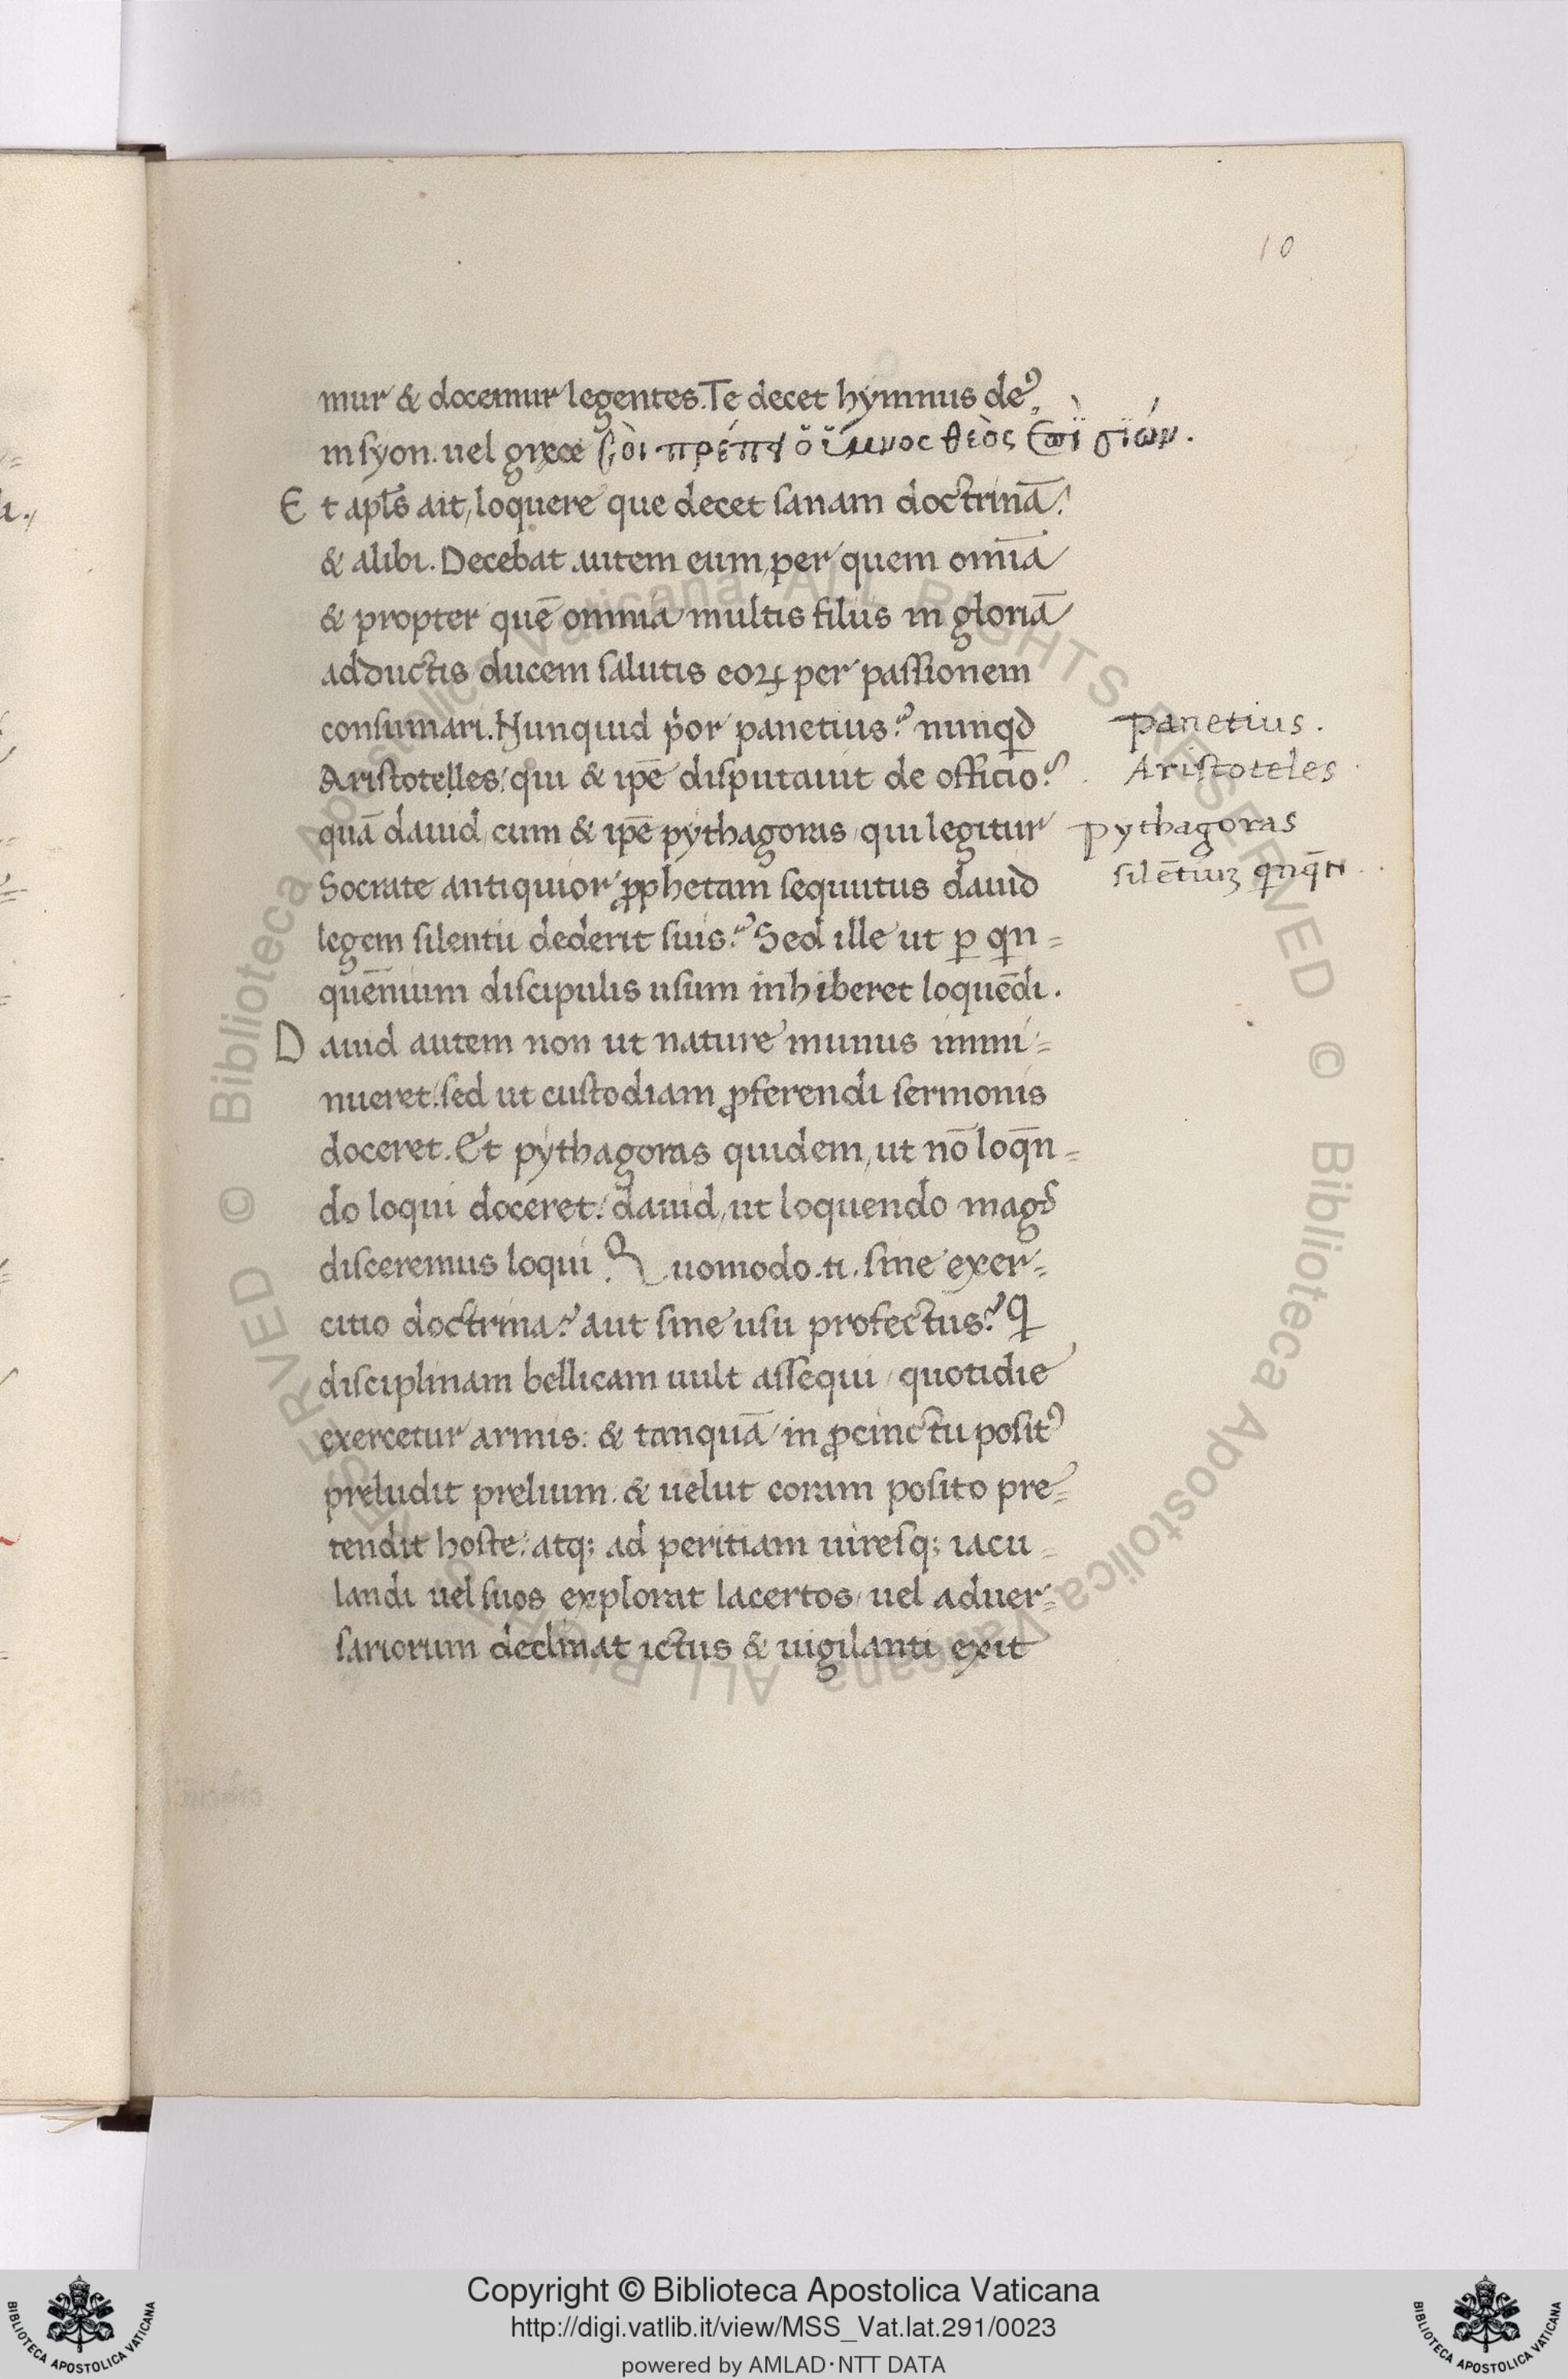 10
mur & docemur legentes. Te decet hymnus deꝰ,
in syon. uel grece Σὸι πρέπει ὁ ὕμνος θεὸς ἐπὶ σιών.
Et apl̃s ait, loquere que decet sanam doctrinā:
& alibi. Decebat autem eum, per quem omīa
& propter quē omnia multis filiis in gloriā
adductis ducem salutis eoꝝ per passionem
consumari. Nunquid p̓or panetius? nunqd̄
Aristotelles: qui & ip̄e disputauit de officio?
quā dauid, cum & ip̄e pythagoras, qui legitur
Socrate antiquior ꝓphetam sequutus dauid
legem silentii dederit suis? Sed ille ut ꝑ qn=
quēnium discipulis usum inhiberet loquēdi.
Dauid autem non ut nature munus immi=
nueret: sed ut custodiam ꝓferendi sermonis
doceret. Et pythagoras quidem, ut nō loq̄n=
do loqui doceret: dauid, ut loquendo magꝭ
disceremus loqui. Quomodo .n. sine exer=
citio doctrina? aut sine usu profectus? Q
disciplinam bellicam uult assequi, quotidie
exercetur armis: & tanquā in ꝓcinctu positꝰ
preludit prelium. & uelut coram posito pre=
tendit hoste: atq; ad peritiam uiresq; iacu=
landi uel suos explorat lacertos, uel aduer=
sariorum declinat ictus & uigilanti exit
panetius.
Aristoteles
pythagoras
silētiuꝫ qnq̄n
Copyright © Biblioteca Apostolica Vaticana
http://digi.vatlib.it/view/MSS_Vat.lat.291/0023
powered by AMLAD·NTT DATA